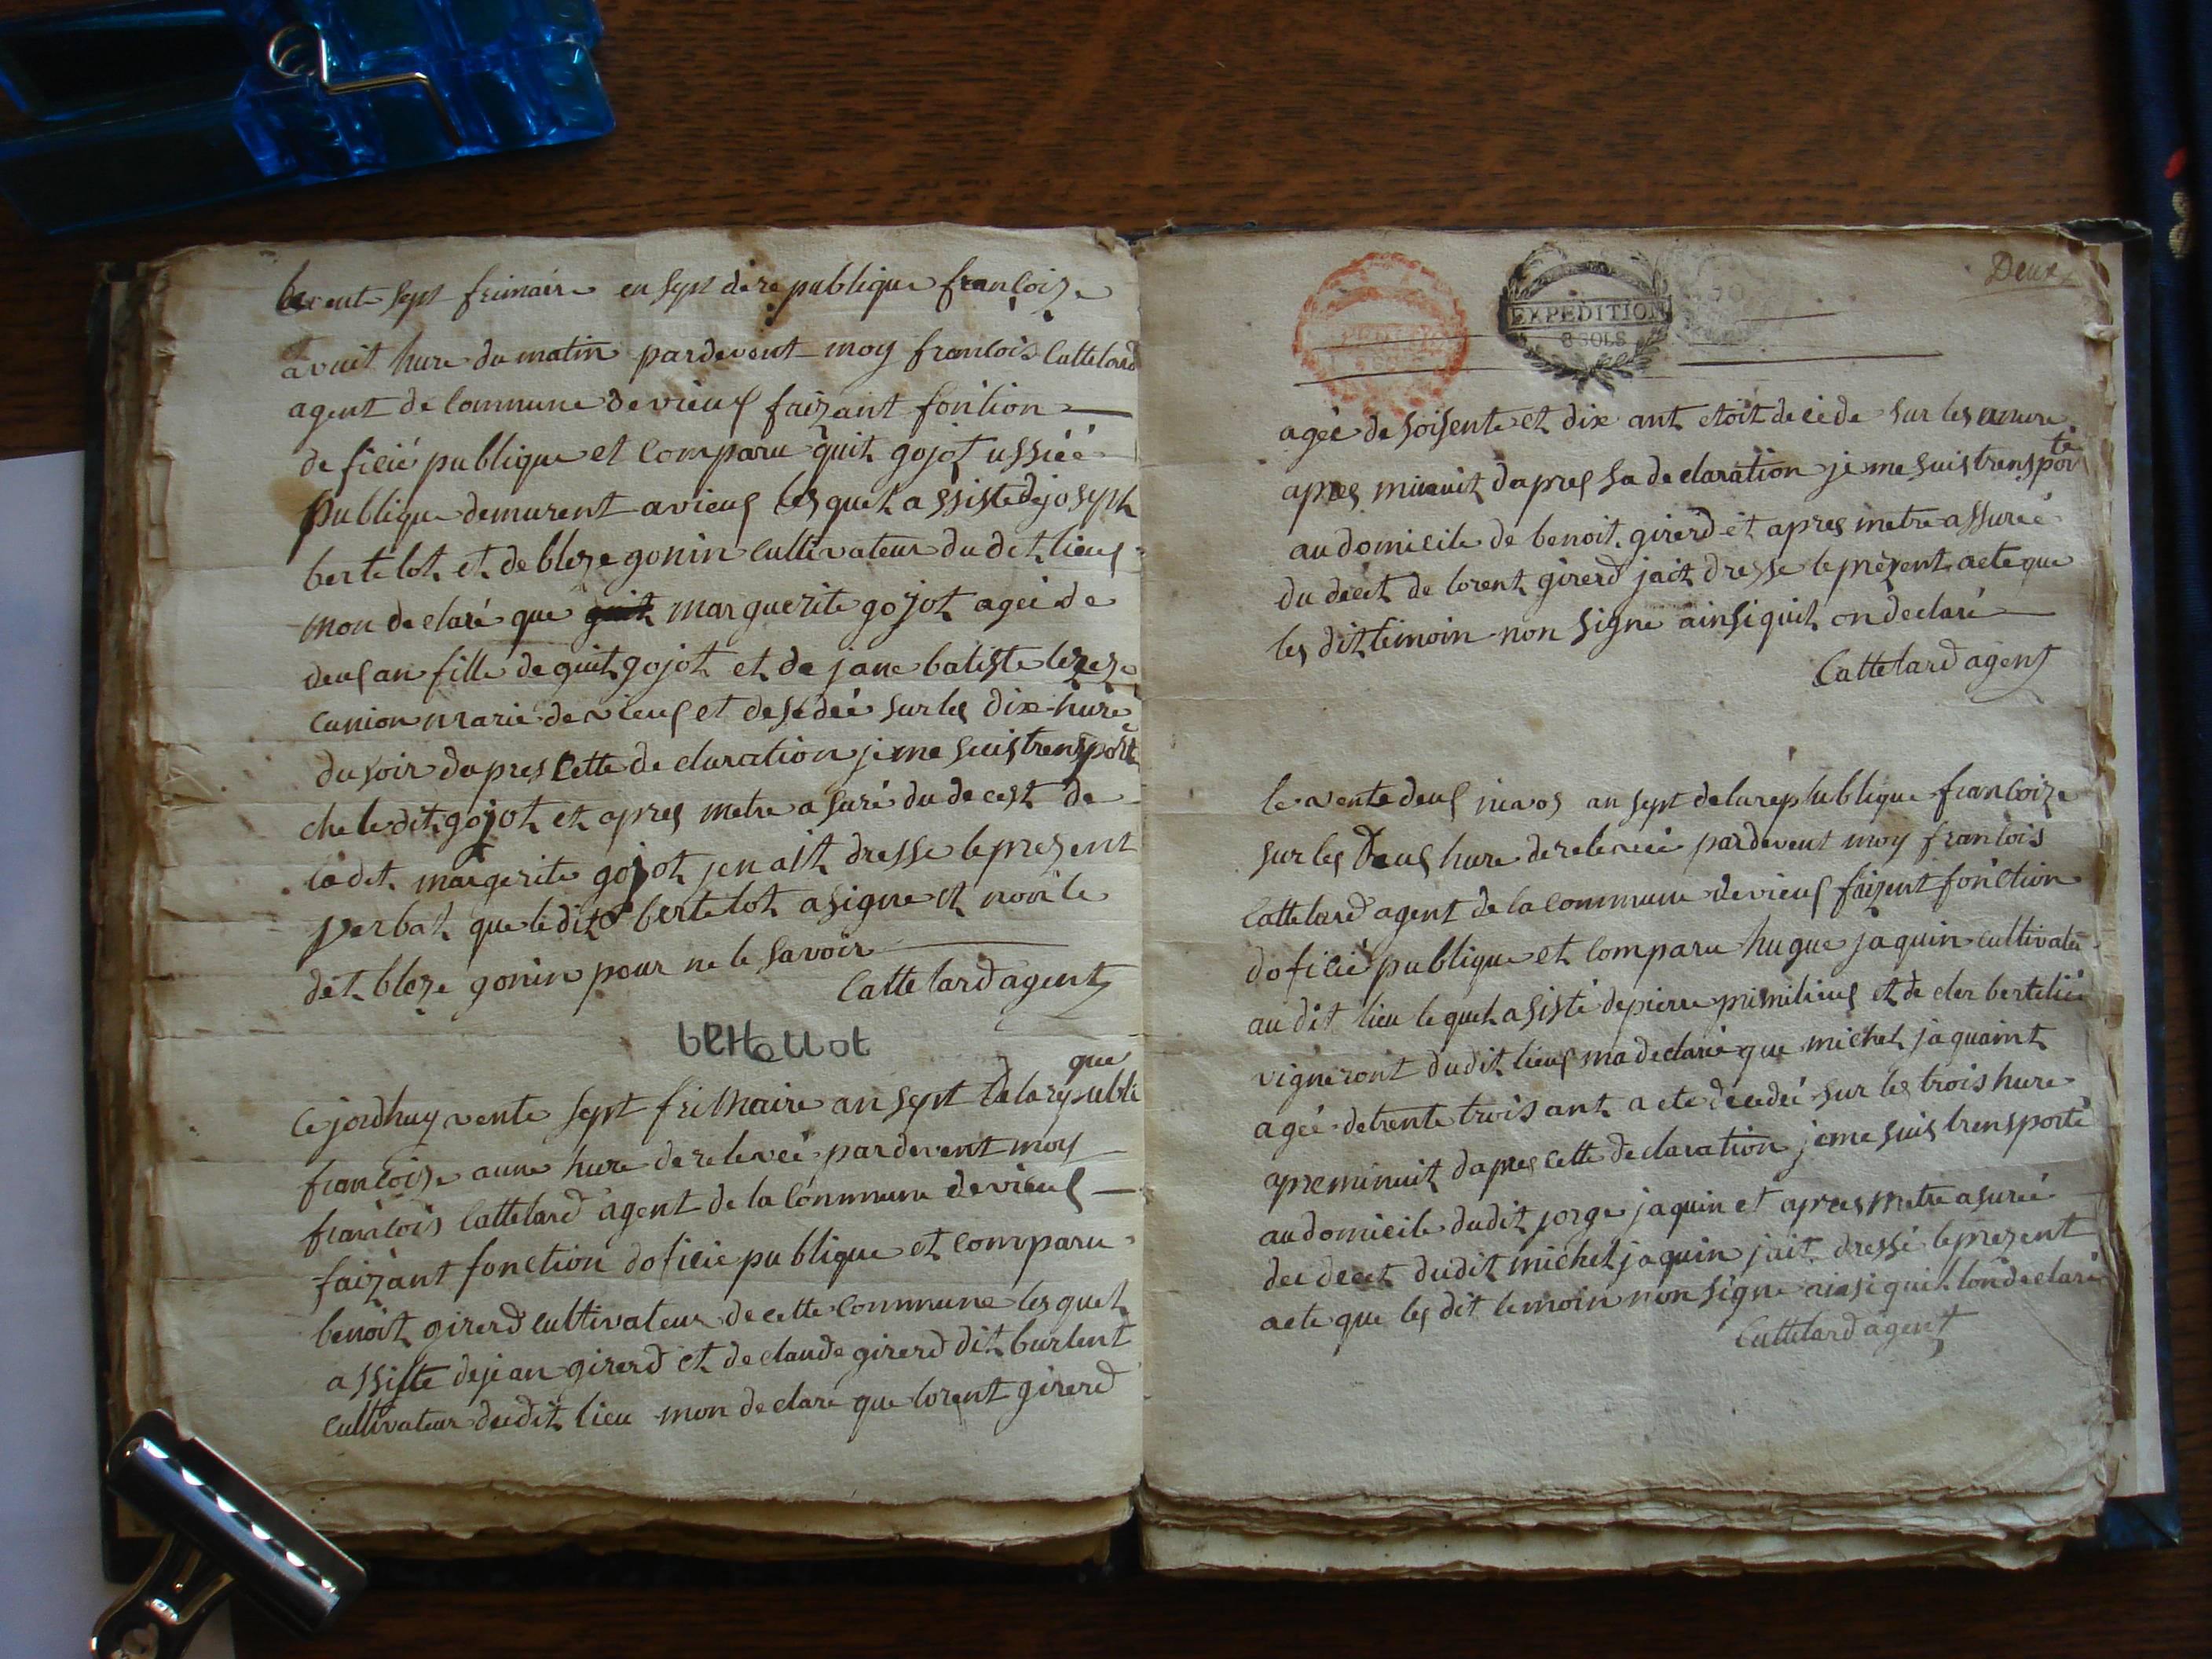 le vente sept frimaire en sept de re publique françoize
a vuit hure du matin pardevent moy francois Cattelard
agent de Commune de vieus faizant fontion
de ficié publique et Comparu quit gojot ussiéé
publique demurent a vieus les quel assiste de joseph
bertelot et de bleze gonin Cultivateur du dit lieus
mon declaré que marguerite gojot ageé de
deus an fille de quit gojot et de jane batiste
Cunion marie de vieus et desédéé sur les dix hure
du soir dapres Cette de claration je me suis transporté
che le dit gojot et apres metre a suré du decest de
la dit margerite gojot jen ait dresse le prezent
verbat que le dit bertelot a signe et non le
det bleze gonin pour ne le savoir
Cattelard agent
berteLLot
Ce jordhuy vente sept frimaire an sept de la republi
que
francoize a une hure de relevéé pardevent moy
francois Cattelard agent de la Commune de vieus
faizant fonction doficié publique et comparu
benoit girerd cultivateur de cette commune les quel
assiste de jean girerd et de claude girerd dit burlent
Cultivateur dudit lieu mon declaré que lorent girerd
Deux
EXPEDITION
8 SOLS
ageé de soisente et dix ant etoit decede sur les hure
apres minuit dapres sa declaration je me suis transpor
té
au domicile de benoit girerd et apres metre assureé
du decet de lorent girerd jait dresse le prezent acte que
les dit temoin non signe ainsi quil on declaré
Cattelard agent
le vente deus nivos an sept de la replublique francoize
sur les deus hure de releveé pardevent moy francois
Cattelard agent de la commune de vieus faizent fonction
doficié publique et Comparu hugue jaquin cultivateu
au dit lieu le quel asisté de pierre et de
vigneront dudit lieus ma declaré que michel jaquaint
ageé de trente trois ant a ete decedéé sur les trois hure
apre minuit dapres cette declaration je me suis transporté
au domicile dudit jorge jaquin et apres metre asureé
du decet dudit michel jaquin jait dressé le prezent
acte que les dit temoin non signe ainsi quil lon declaré
Cattelard agent